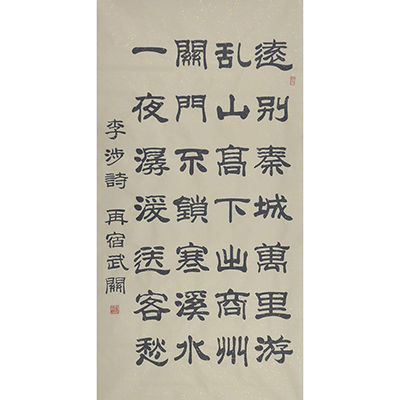 遠別秦城萬里游
乱山高下出商州
關門不鎖寒溪水
一夜潺湲送客愁
李涉詩 再宿武關